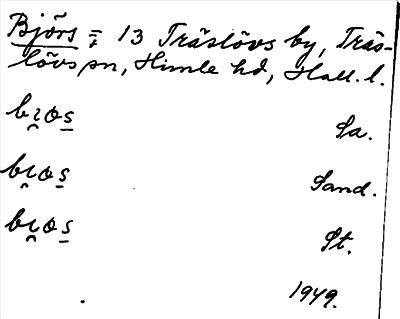 Björs = 13 Träslövs by, Träs-
lövs sn, Himle hd, Hall. l.
bı̯os̲ Sa.
bı̯os̲ Sand.
bı̯os̲ St.
1949.